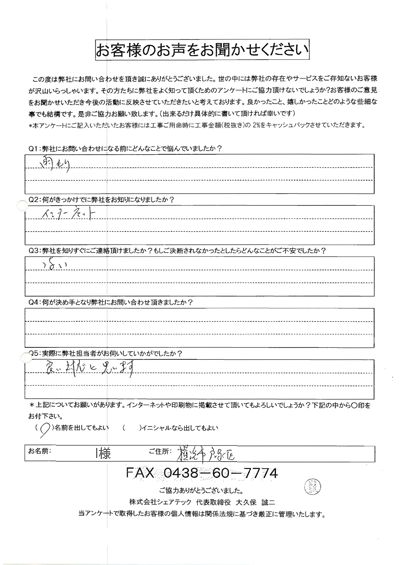 お客様のお声をお聞かせください
この度は弊社にお問い合わせを頂き誠にありがとうございました。世の中には弊社の存在やサービスをご存知ないお客様
が沢山いらっしゃいます。その方たちに弊社をよく知って頂くためのアンケートにご協力頂けないでしょうか?お客様のご意見
をお聞かせいただき今後の活動に反映させていただきたいと考えております。良かったこと、嬉しかったことどのような些細な
事でも結構です。是非ご協力お願い致します。(出来るだけ具体的に書いて頂ければ幸いです)
*本アンケートにご記入いただいたお客様には工事ご用命時に工事金額(税抜き)の2%をキャッシュバックさせていただきます。
Q1:弊社にお問い合わせになる前にどんなことで悩んでいましたか?
雨もり
Q2:何がきっかけでに弊社をお知りになりましたか?
インターネット
Q3:弊社を知りすぐにご連絡頂けましたか?もしご決断されなかったとしたらどんなことがご不安でしたか?
はい
Q4:何が決め手となり弊社にお問い合わせ頂きましたか?
Q5:実際に弊社担当者がお伺いしていかがでしたか?
良い対応と思います
*上記についてお願いがあります。インターネットや印刷物に掲載させて頂いてもよろしいでしょうか?下記の中から〇印を
お付下さい。
( )名前を出してもよい ( )イニシャルなら出してもよい
お名前: I様 ご住所: 横浜市戸塚区
FAX 0438-60-7774
ご協力ありがとうございました。
株式会社シェアテック 代表取締役 大久保 誠二
当アンケートで取得したお客様の個人情報は関係法規に基づき厳正に管理いたします。